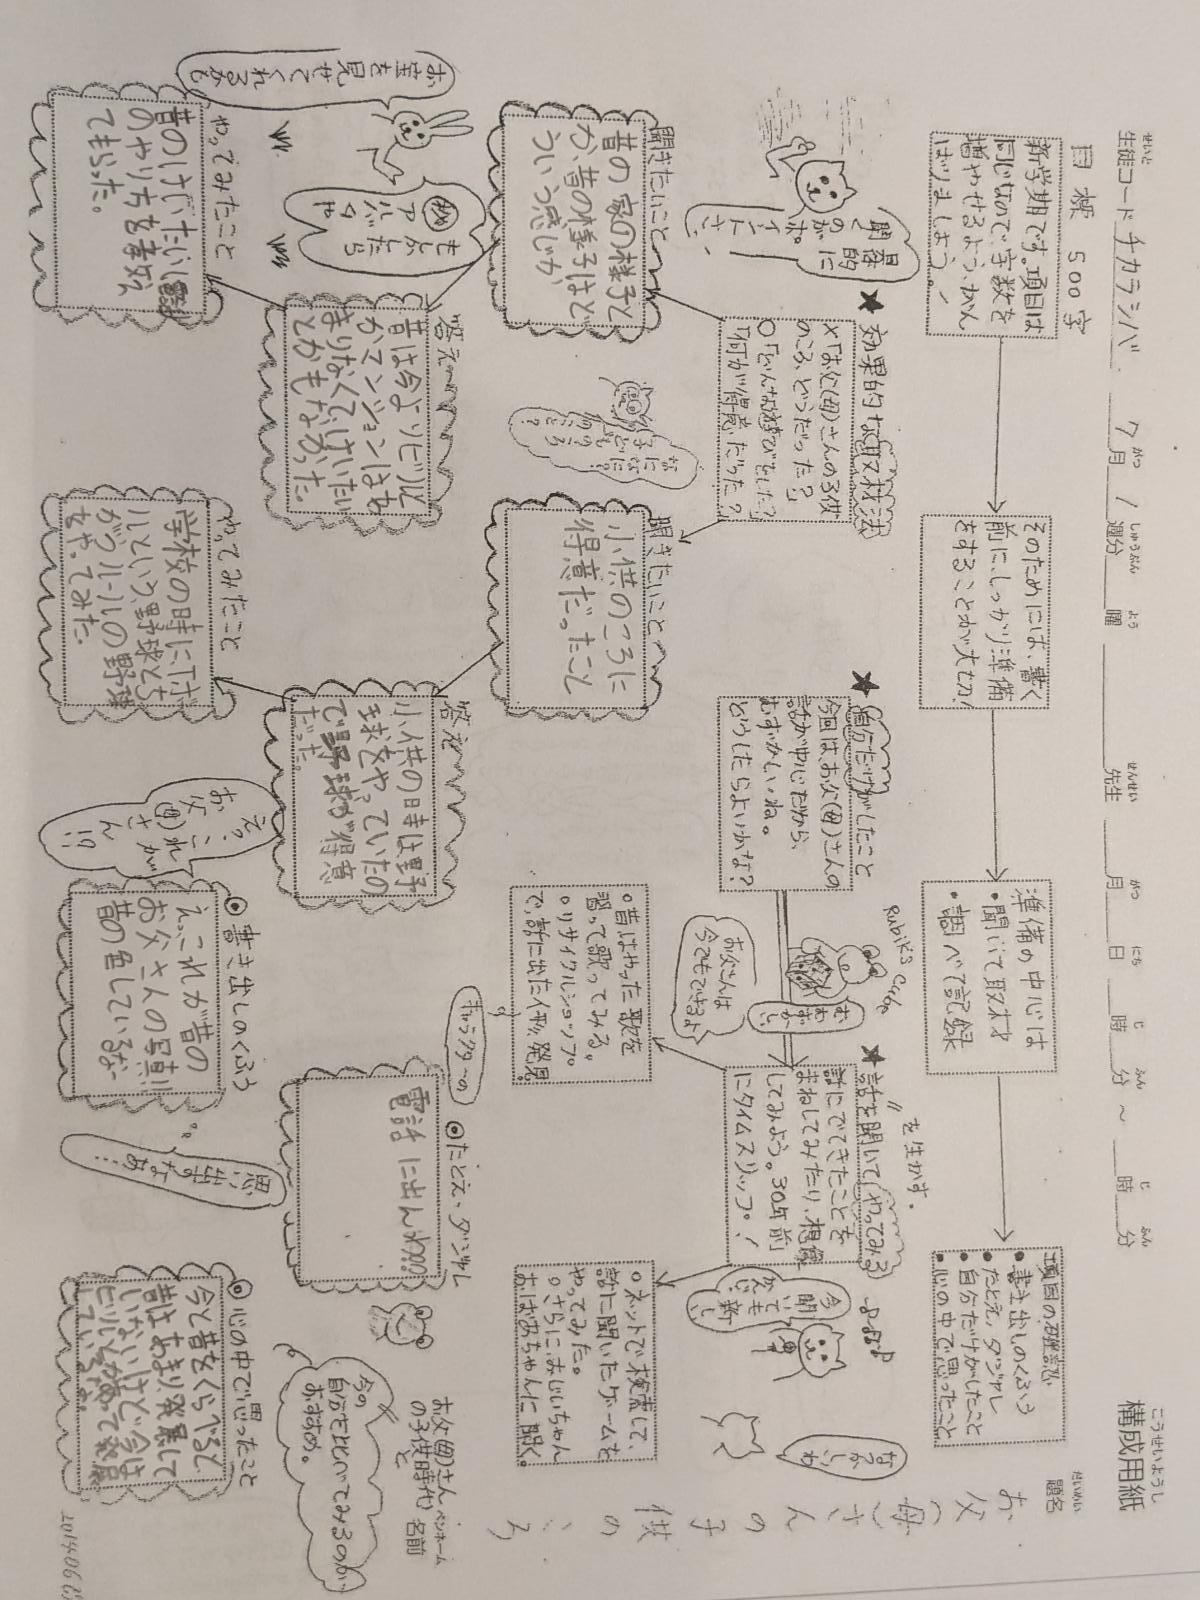 せいと
生徒コード チカラシバ 7月1週分 曜 先生 月 日 時 分 ～ 時 分
がつ しゅうぶん よう せんせい がつ にち じ ふん じ ふん
こうせいようし
構成用紙
だいめい
題名
お父(母)さんの子供のころ
目標 500字
新学期です。項目は
同じなので、字数を
増やせるよう、がん
ばりましょう。！
そのためには、書く
前に、しっかり準備
をすることが大切！
準備の中心は
・聞いて取材
・調べて記録
項目の確認
・書き出しのくふう
・たとえ、ダジャレ
・自分だけがしたこと
・心の中で思ったこと
★効果的な取材法
×「お父(母)さんの子供
のころ、どうだった？」
○「どんな遊びをした？」
「何が得意だった？」
具体的に
聞くの
がポ
イントさ
★自分だけがしたこと
今回は、お父(母)さんの
話が中心だから、
むずかしいね。
どうしたらよいかな？
Rubik's Cube
むずかしい
お父さんは
今でもできるよ
★話を聞いて(やってみる)
〃を生かす。
話にでてきたことを
まねしてみたり、想像
してみよう。30年前
にタイムスリップ！
今聞いても新しい
聞きたいこと
昔の家の様子と
か、昔の様子はど
ういう感じか
聞きたいこと
小供のころに
得意だったこと
○昔はやった歌を
習って歌ってみる。
○リサイクルショップ
で、話に出た
発見。
○ネットで検索して、
話に聞いたゲームを
やってみた。
○さらに、おじいちゃん
おばあちゃんに聞く。
答え
昔は今よりビル
かマンションはあ
まりなくてけいたい
とかもなかった。
答え
小供の時は野
球をやっていたの
で野球が得意
だった。
◎たとえ・ダジャレ
電話に出んわ
お父(母)さん
の子供時代
と
ペンネーム
名前
今の
自分と比べてみるのが
おすすめ。
やってみたこと
昔のけいたい電話
のやり方を教え
てもらった。
やってみたこと
学校の時に、
ルという、野球とち
がうルールの野球
をやってみた。
◎書き出しのくふう
えっこれが昔の
お父さんの写真!!
昔の色しているな
えっ、これが
お父(母)さん!?
思い出すなあ…
◎心の中で思ったこと
今と昔をくらべると
昔はあまり発展して
いないけど、今は